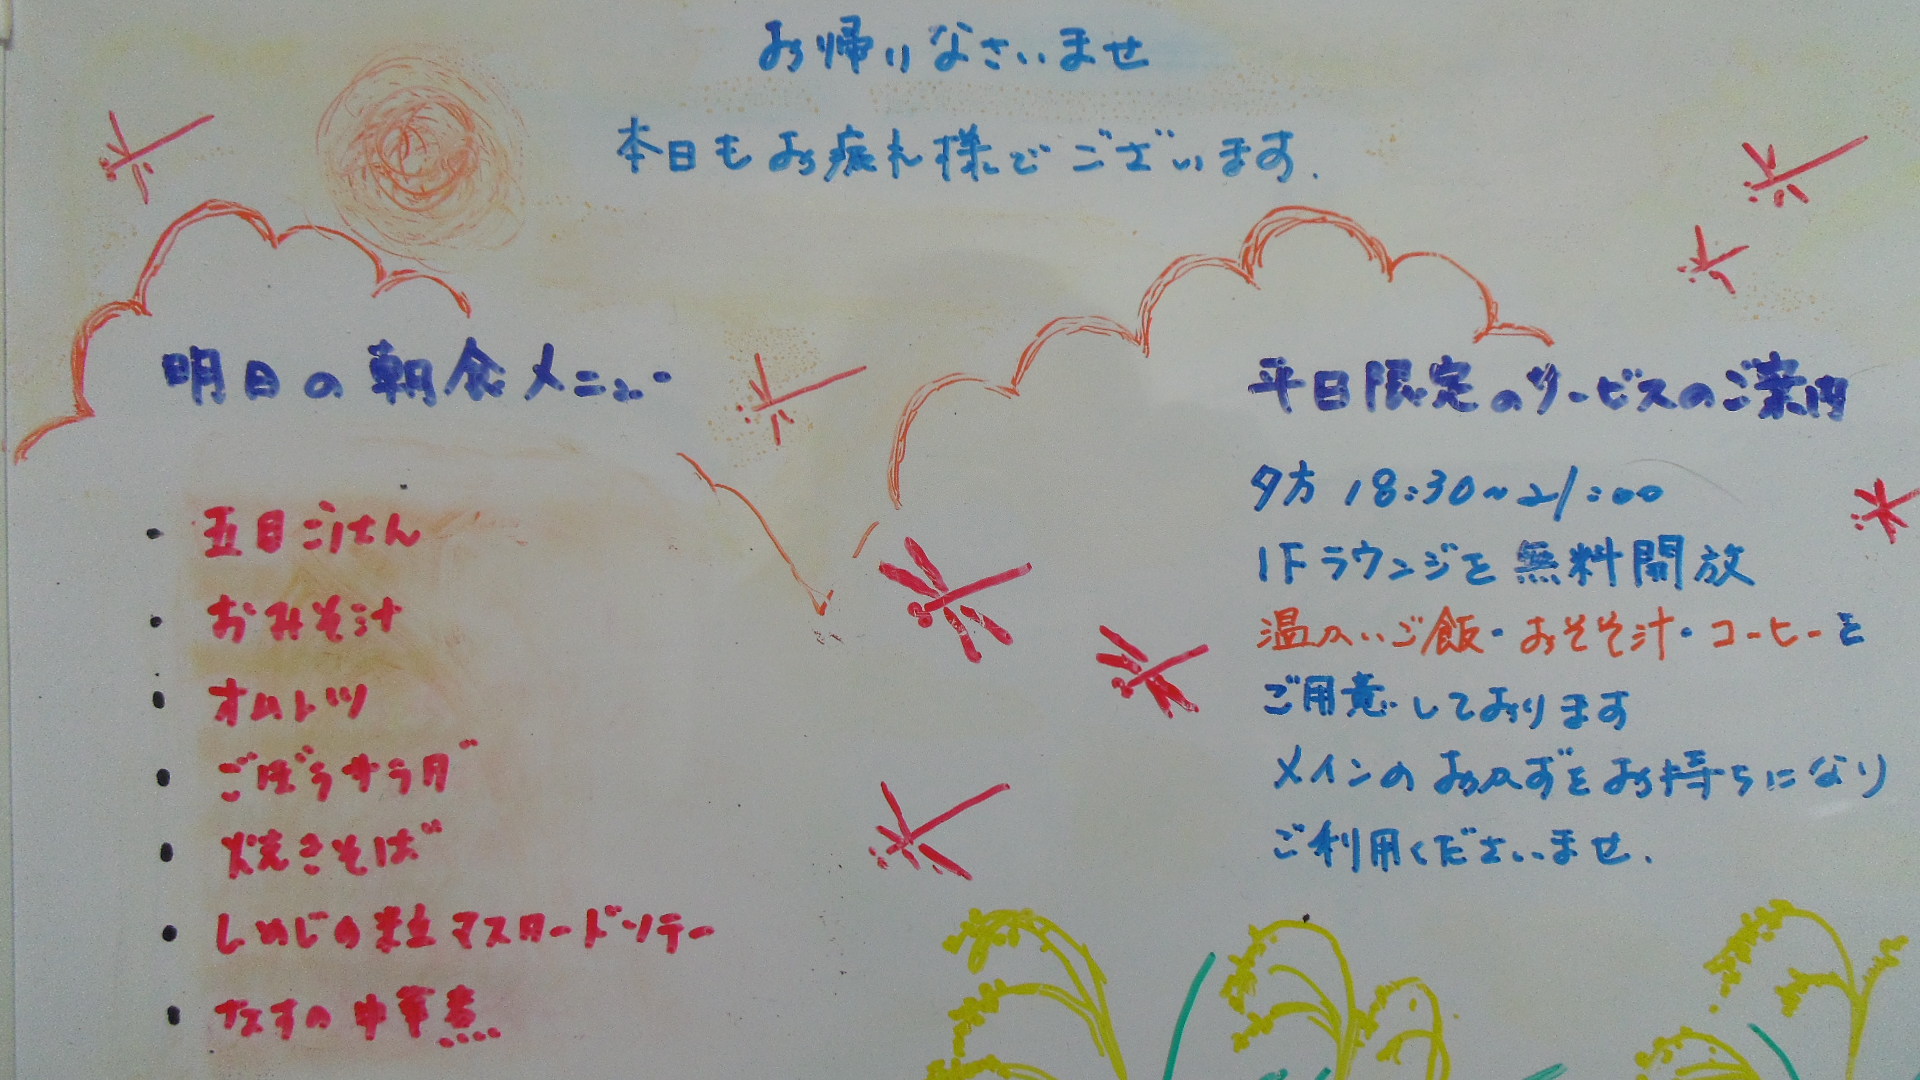 お帰りなさいませ
本日もお疲れ様でございます.
明日の朝食メニュー
・五目ごはん
・おみそ汁
・オムレツ
・ごぼうサラダ
・焼きそば
・しめじの粒マスタードソテー
・なすの中華煮
平日限定のサービスのご案内
夕方 18:30~21:00
1Fラウンジを無料開放
温かいご飯・おみそ汁・コーヒーを
ご用意しております
メインのおかずをお持ちになり
ご利用くださいませ.